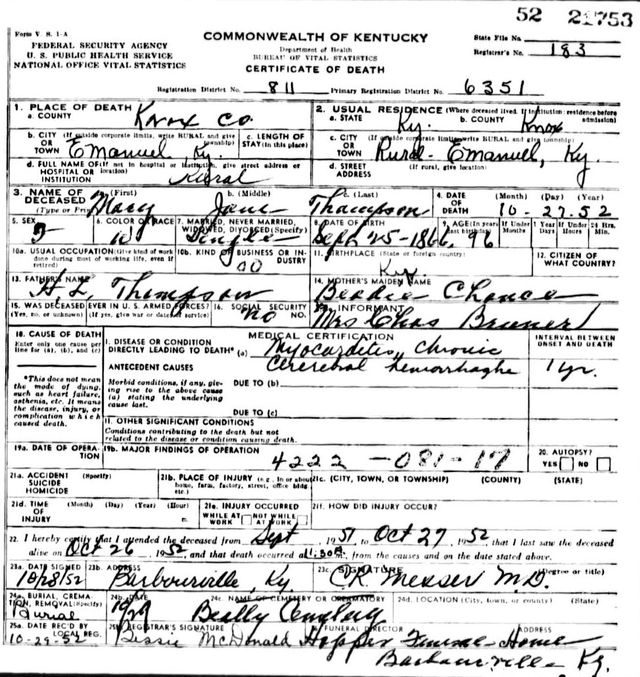 52 21753
Form V. S. 1-A
FEDERAL SECURITY AGENCY
U. S. PUBLIC HEALTH SERVICE
NATIONAL OFFICE VITAL STATISTICS
COMMONWEALTH OF KENTUCKY
Department of Health
BUREAU OF VITAL STATISTICS
CERTIFICATE OF DEATH
State File No.
Registrar's No. 183
Registration District No. 811 Primary Registration District No. 6351
1. PLACE OF DEATH
a. COUNTY Knox Co.
2. USUAL RESIDENCE (Where deceased lived. If institution: residence before admission)
a. STATE Ky. b. COUNTY Knox
b. CITY (If outside corporate limits, write RURAL and give township) OR TOWN Emanuel Ky.
c. LENGTH OF STAY (in this place)
c. CITY (If outside corporate limits write RURAL and give township) OR TOWN Rural- Emanuel, Ky.
d. FULL NAME OF (If not in hospital or institution, give street address or location) HOSPITAL OR INSTITUTION Rural
d. STREET ADDRESS (If rural, give location)
3. NAME OF DECEASED (Type or Print)
a. (First) Mary b. (Middle) Jane c. (Last) Thompson
4. DATE OF DEATH (Month) (Day) (Year) 10-27-52
5. SEX F
6. COLOR OR RACE W
7. MARRIED, NEVER MARRIED, WIDOWED, DIVORCED (Specify) Single
8. DATE OF BIRTH Sept 25-1866
9. AGE (In years last birthday) 96
If Under 1 Year Months Days
If Under 24 Hrs. Hours Min.
10a. USUAL OCCUPATION (Give kind of work done during most of working life, even if retired)
10b. KIND OF BUSINESS OR INDUSTRY
11. BIRTHPLACE (State or foreign country) Ky.
12. CITIZEN OF WHAT COUNTRY?
13. FATHER'S NAME Thompson
14. MOTHER'S MAIDEN NAME Chance
15. WAS DECEASED EVER IN U. S. ARMED FORCES? (Yes, no, or unknown) (If yes, give war or dates of service)
16. SOCIAL SECURITY NO. no
17. INFORMANT Mrs Chas Bruner
18. CAUSE OF DEATH
Enter only one cause per line for (a), (b), and (c)
*This does not mean the mode of dying, such as heart failure, asthenia, etc. It means the disease, injury, or complication which caused death.
MEDICAL CERTIFICATION
INTERVAL BETWEEN ONSET AND DEATH
I. DISEASE OR CONDITION DIRECTLY LEADING TO DEATH* (a) Myocarditis, Chronic
Cererebral hemorrhaghe 1 yr.
ANTECEDENT CAUSES
Morbid conditions, if any, giving rise to the above cause (a) stating the underlying cause last.
DUE TO (b)
DUE TO (c)
II. OTHER SIGNIFICANT CONDITIONS
Conditions contributing to the death but not related to the disease or condition causing death.
19a. DATE OF OPERATION
19b. MAJOR FINDINGS OF OPERATION
4222 -081-17
20. AUTOPSY? YES NO
21a. ACCIDENT SUICIDE HOMICIDE (Specify)
21b. PLACE OF INJURY (e.g., in or about home, farm, factory, street, office bldg., etc.)
21c. (CITY, TOWN, OR TOWNSHIP) (COUNTY) (STATE)
21d. TIME OF INJURY (Month) (Day) (Year) (Hour) m.
21e. INJURY OCCURRED WHILE AT WORK NOT WHILE AT WORK
21f. HOW DID INJURY OCCUR?
22. I hereby certify that I attended the deceased from Sept, 1951, to Oct 27, 1952, that I last saw the deceased
alive on Oct 26, 1952, and that death occurred at 1:30 A m., from the causes and on the date stated above.
23a. DATE SIGNED 10/28/52
23b. ADDRESS Barbourville, Ky.
23c. SIGNATURE (Degree or title) C.R. Messer M.D.
24a. BURIAL, CREMATION, REMOVAL (Specify) Burial
24b. DATE 10/29
24c. NAME OF CEMETERY OR CREMATORY
24d. LOCATION (City, town, or county) (State)
25a. DATE REC'D BY LOCAL REG. 10-29-52
25b. REGISTRAR'S SIGNATURE Bessie McDonald
26. FUNERAL DIRECTOR ADDRESS Hopper Funeral Home
Barbourville Ky.